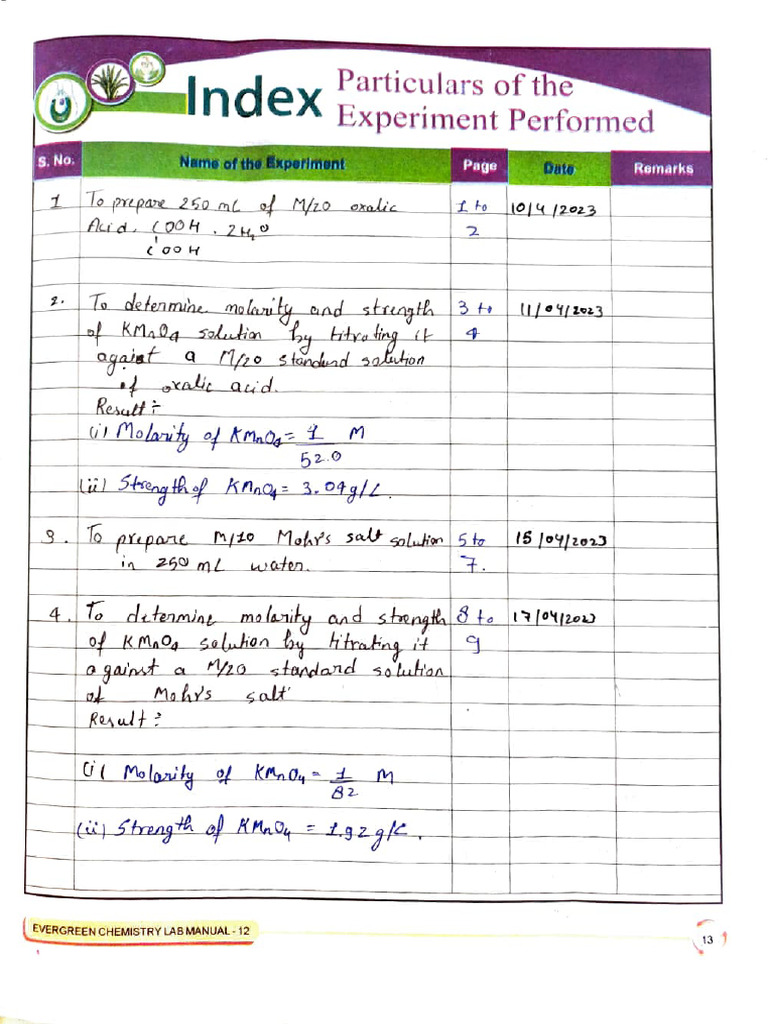 Index
Particulars of the
Experiment Performed
S. No. Name of the Experiment Page Date Remarks
1 To prepare 250 mL of M/20 oxalic 1 to 10/4/2023
Acid. COOH . 2H₂O 2
COOH
2. To determine molarity and strength 3 to 11/04/2023
of KMnO4 solution by titrating it 4
against a M/20 standard solution
of oxalic acid.
Result:-
(i) Molarity of KMnO4 = 1 M
52.0
(ii) Strength of KMnO4 = 3.04g/L.
3. To prepare M/10 Mohr's salt solution 5 to 15/04/2023
in 250 mL water. 7.
4. To determine molarity and strength 8 to 17/04/2023
of KMnO4 solution by titrating it 9
against a M/20 standard solution
of Mohr's salt
Result:
(i) Molarity of KMnO4 = 1 M
82
(ii) Strength of KMnO4 = 1.92g/L.
EVERGREEN CHEMISTRY LAB MANUAL - 12
13